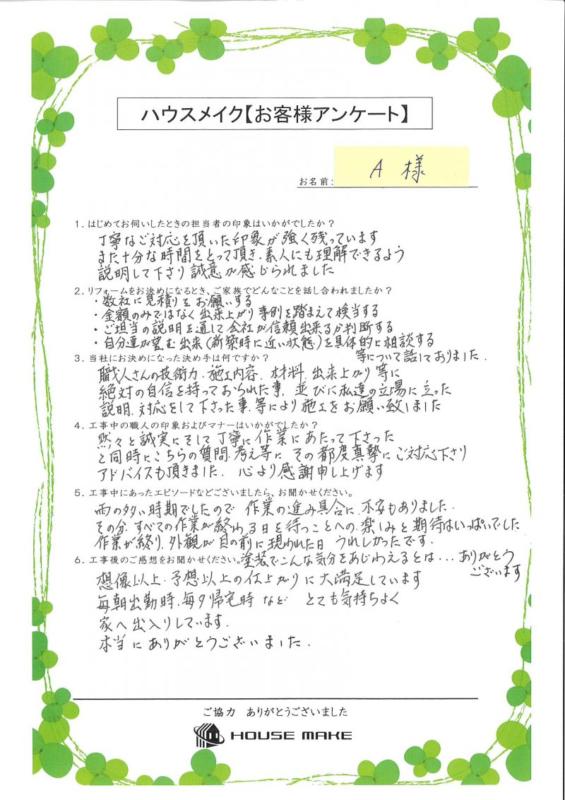 ハウスメイク【お客様アンケート】
お名前: A 様
1. はじめてお伺いしたときの担当者の印象はいかがでしたか?
丁寧なご対応を頂いた印象が強く残っています
また十分な時間をとって頂き、素人にも理解できるよう
説明して下さり誠意が感じられました
2. リフォームをお決めになるとき、ご家族でどんなことを話し合われましたか?
・数社に見積りをお願いする
・金額のみではなく出来上がり事例を踏まえて検当する
・ご担当の説明を通して会社が信頼出来るか判断する
・自分達が望む出来(新築時に近い状態)を具体的に相談する
等について話しておりました。
3. 当社にお決めになった決め手は何ですか?
職人さんの技術力、施工内容、材料、出来上がり等に
絶対の自信を持っておられた事、並びに私達の立場に立った
説明、対応をして下さった事、等により施工をお願い致しました
4. 工事中の職人の印象およびマナーはいかがでしたか?
黙々と誠実にそして丁寧に作業にあたって下さった
と同時にこちらの質問、考え等に その都度真摯にご対応下さり
アドバイスも頂きました. 心より感謝申し上げます
5. 工事中にあったエピソードなどございましたら、お聞かせください。
雨の多い時期でしたので 作業の進み具合に 不安もありました.
その分、すべての作業が終わる日を待つことへの 楽しみと期待はいっぱいでした
作業が終り、外観が目の前に現われた日 うれしかったです.
6. 工事後のご感想をお聞かせください。塗装でこんな気分をあじわえるとは... ありがとう
ございます
想像以上・予想以上の仕上がりに大満足しています
毎朝出勤時、毎夕帰宅時など とても気持ちよく
家へ出入りしています.
本当にありがとうございました.
ご協力 ありがとうございました
HOUSE MAKE